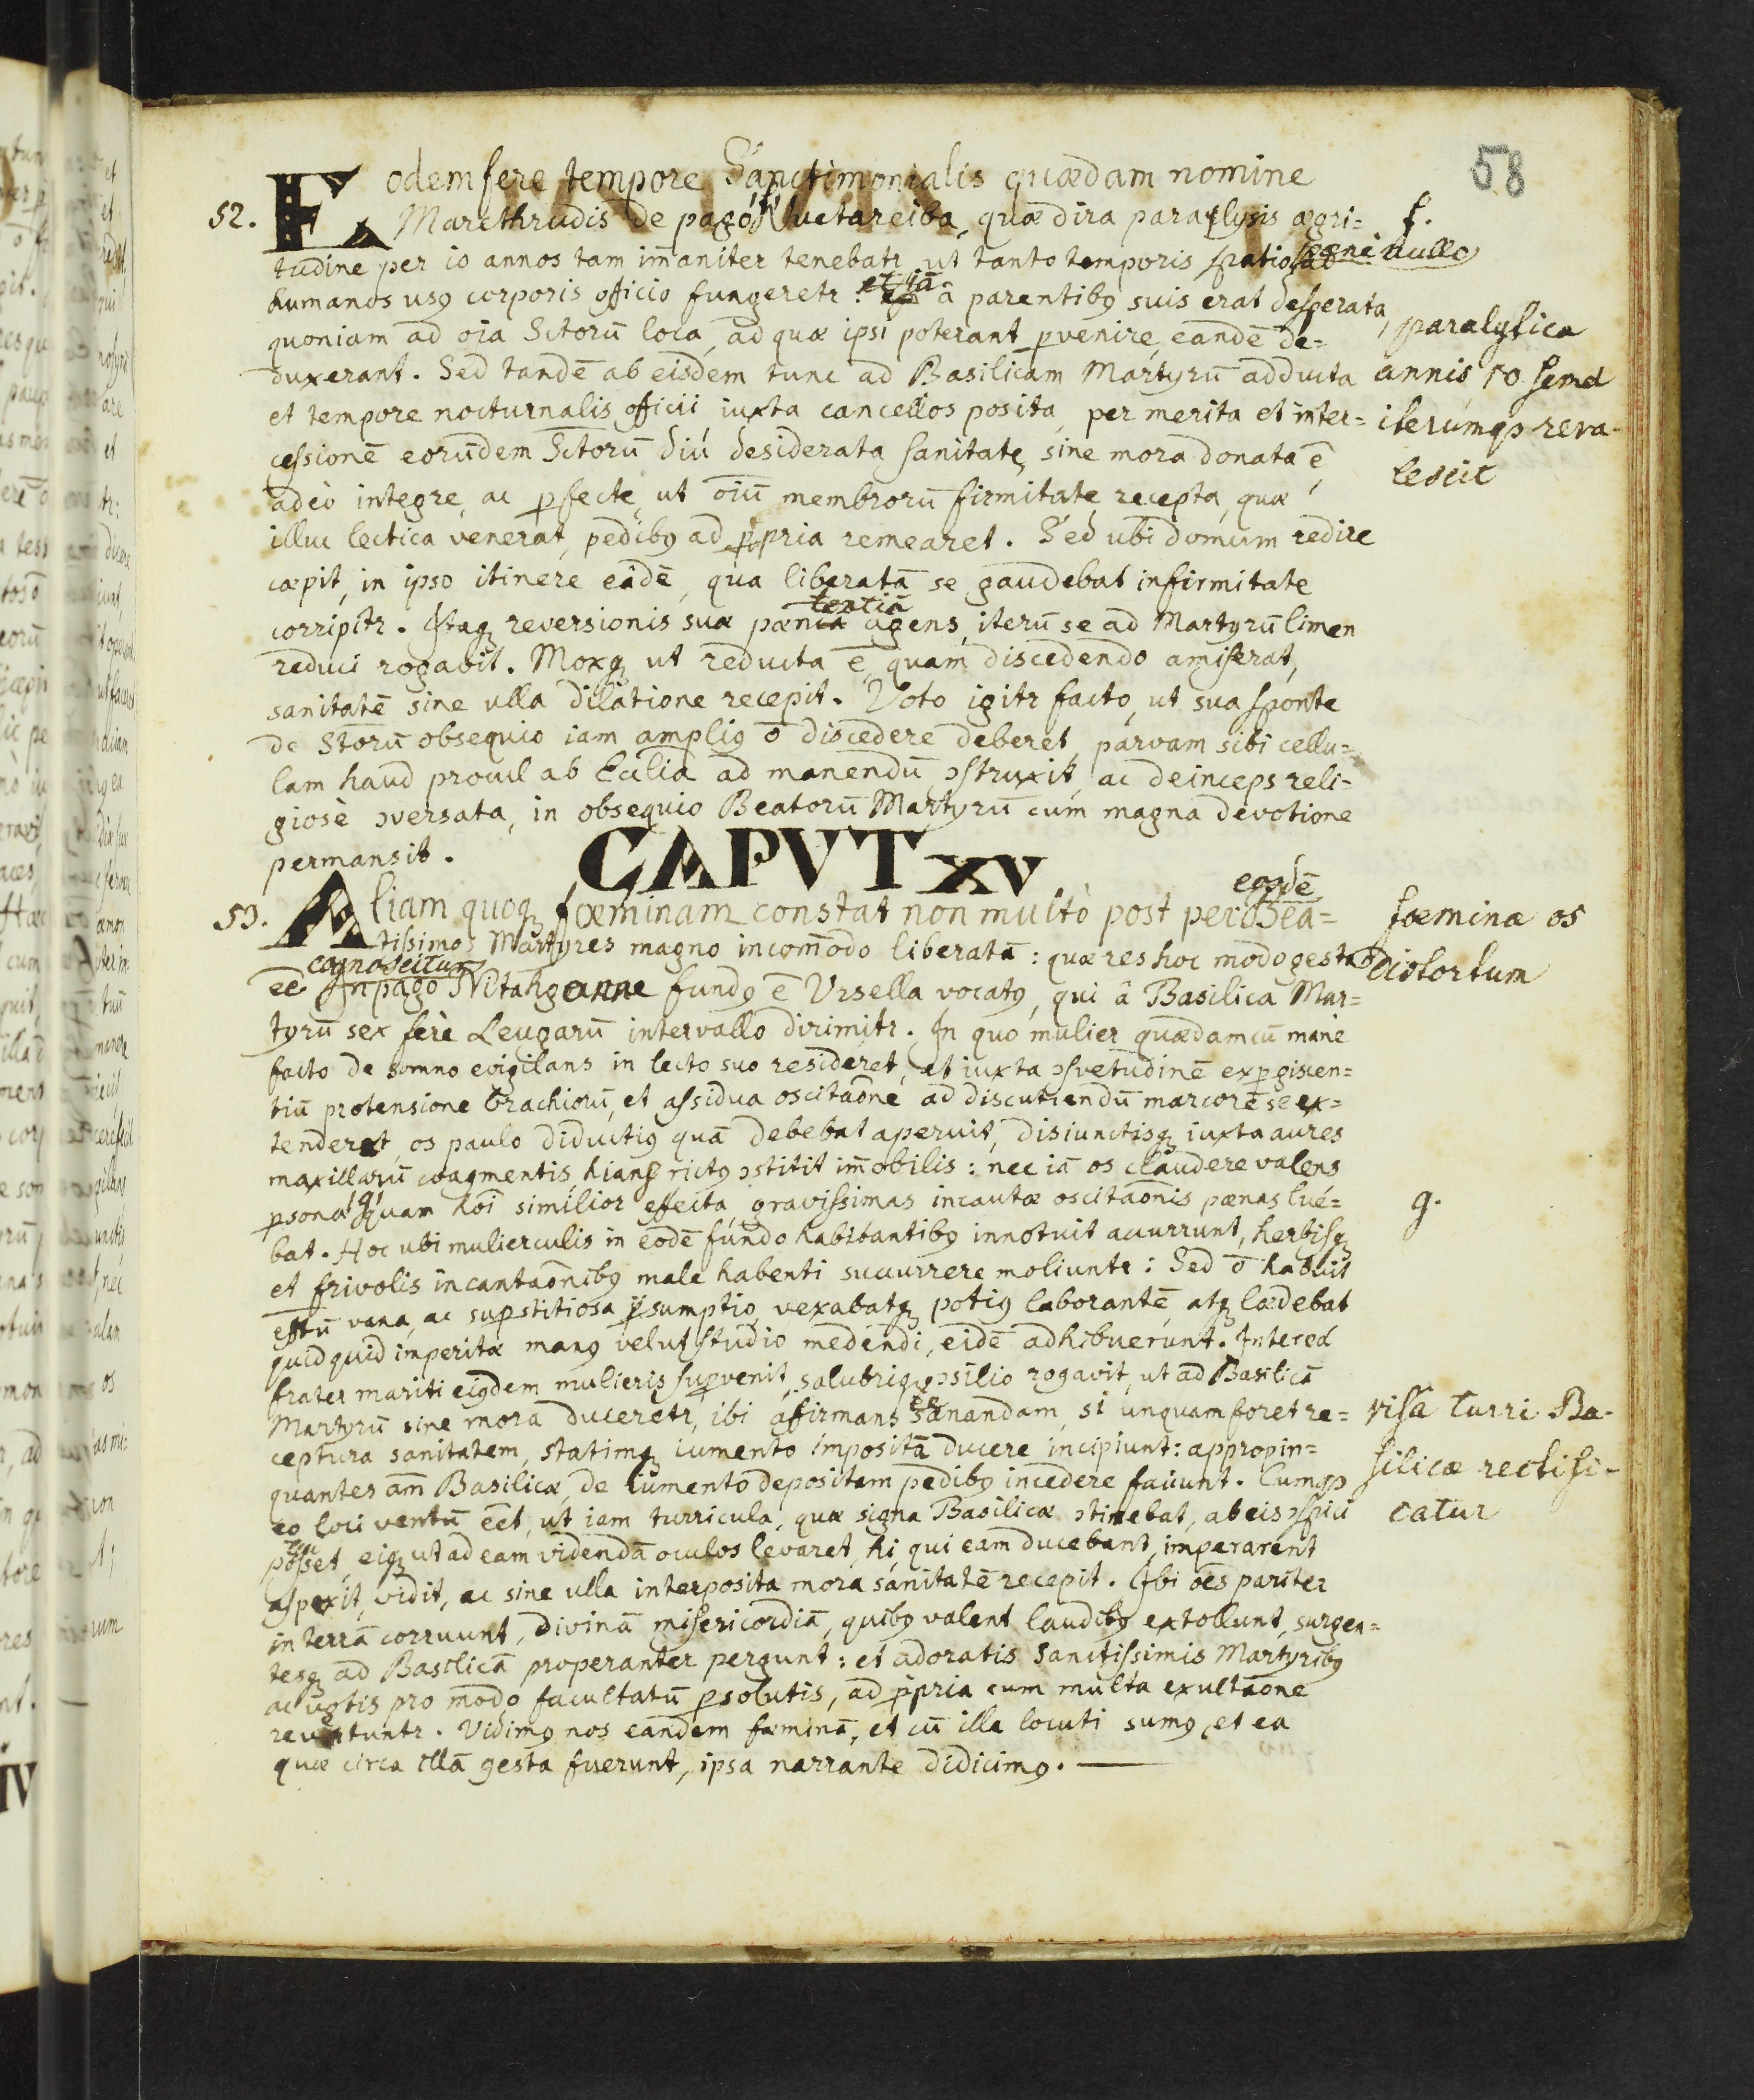 58
52. Eodem fere tempore Sanctimonialis quædam nomine
Marcthrudis de pago Wuetareiba, quæ dira paralysis ægri= f.
tudine per io annos tam im̄aniter tenebatr, ut tanto temporis spatio pæne nullo
humanos usꝯ corporis officio fungeretr. et iā â parentibꝯ suis erat desperata,
quoniam ad oīa Sctorū loca, ad quæ ipsi poterant pvenire, eandē de= paralytica
duxerant. Sed tandē ab eisdem tunc ad Basilicam Martyrū adducta annis 10 semel
et tempore nocturnalis officii iuxta cancellos posita, per merita et inter= iterumqꝫ reva-
cessionē eorūdem Sctorū diú desiderata sanitate, sine mora donata ē, lescit
adeò integre, ac pfecte, ut oīū membrorū firmitate recepta, quæ
illuc lectica venerat, pedibꝯ ad ppria remearet. Sed ubi domum redire
cæpit, in ipso itinere eâdē, qua liberatā se gaudebat infirmitate
corripitr. Itaqꝫ reversionis suæ pœnitentiā agens, iterū se ad Martyrū limen
reduci rogavit. Moxqꝫ ut reducta ē, quam discedendo amiserat,
sanitatē sine ulla dilatione recepit. Voto igitr facto, ut sua sponte
de Storū obsequio iam ampliꝯ ō discedere deberet, parvam sibi cellu=
lam haud procul ab Ecclīa ad manendū ɔstruxit, ac deinceps reli=
giosè ɔversata, in obsequio Beatorū Martyrū cum magna devotione
permansit.
CAPVT XV
53. Aliam quoqꝫ fœminam constat non multò post per eosdē Bea= fœminæ os
tissimos Martyres magno incom̄odo liberatā: quæ res hoc modo gesta distortum
eē cognoscitur. In pago Nitahganne fundꝯ ē Vrsella vocatꝯ, qui â Basilica Mar=
tyrū sex ferè Leugarū intervallo dirimitr. In quo mulier quædam cū mane
facto de somno evigilans in lecto suo resideret, et iuxta ɔsvetudinē expgiscen=
tiū protensione brachiorū, et assidua oscitaōne ad discutiendū marcorē se ex=
tenderet, os paulo diductiꝯ quā debebat aperuit, disiunctisqꝫ iuxta aures
maxillarū coagmentis, hians rictꝯ ɔstitit im̄obilis: nec iā os claudere valens
psonæ quam hoī similior effecta, gravissimas incautæ oscitaōnis pœnas lué= g.
bat. Hoc ubi mulierculis in eodē fundo habitantibꝯ innotuit accurrunt, herbisqꝫ
et frivolis incantaōnibꝯ male habenti succurrere moliuntr: Sed ō habuit
effū vana, ac supstitiosa psumptio, vexabatqꝫ potiꝯ laborantē, atqꝫ lædebat
quidquid imperitæ manꝯ velut studio medendi, eidē adhibuerunt. Intereà
frater mariti eiꝯdem mulieris supvenit, salubriqꝫ ɔsilio rogavit, ut ad Basilicā
Martyrū sine mora duceretr, ibi afirmans eā sanandam, si unquam foret re= visa turri Ba-
ceptura sanitatem, statimqꝫ iumento impositā ducere incipiunt: appropin= silicæ rectifi-
quantes am̄ Basilicæ, de iumento depositam pedibꝯ incedere faciunt. Cumqꝫ
eo loci ventū eēt, ut iam turricula, quæ signa Basilicæ ɔtinebat, ab eis ɔspici catur
posset, eiqꝫ ut ad eam videndā oculos levaret, hi, qui eam ducebant, impararent
aspexit, vidit, ac sine ulla interposita mora sanitatē recepit. Ibi oēs pariter
in terrā corruunt, divinā misericordiā, quibꝯ valent laudibꝯ extollunt, surgen=
tesqꝫ ad Basilicā properanter pergunt: et adoratis Sanctissimis Martyribꝯ
ac votis pro modo facultatū psolutis, ad ppria cum multa exultaōne
revertuntr. Vidimꝯ nos eandem fœminā, et cū illa locuti sumꝯ, et ea
quæ circa illā gesta fuerunt, ipsa narrante didicimꝯ.